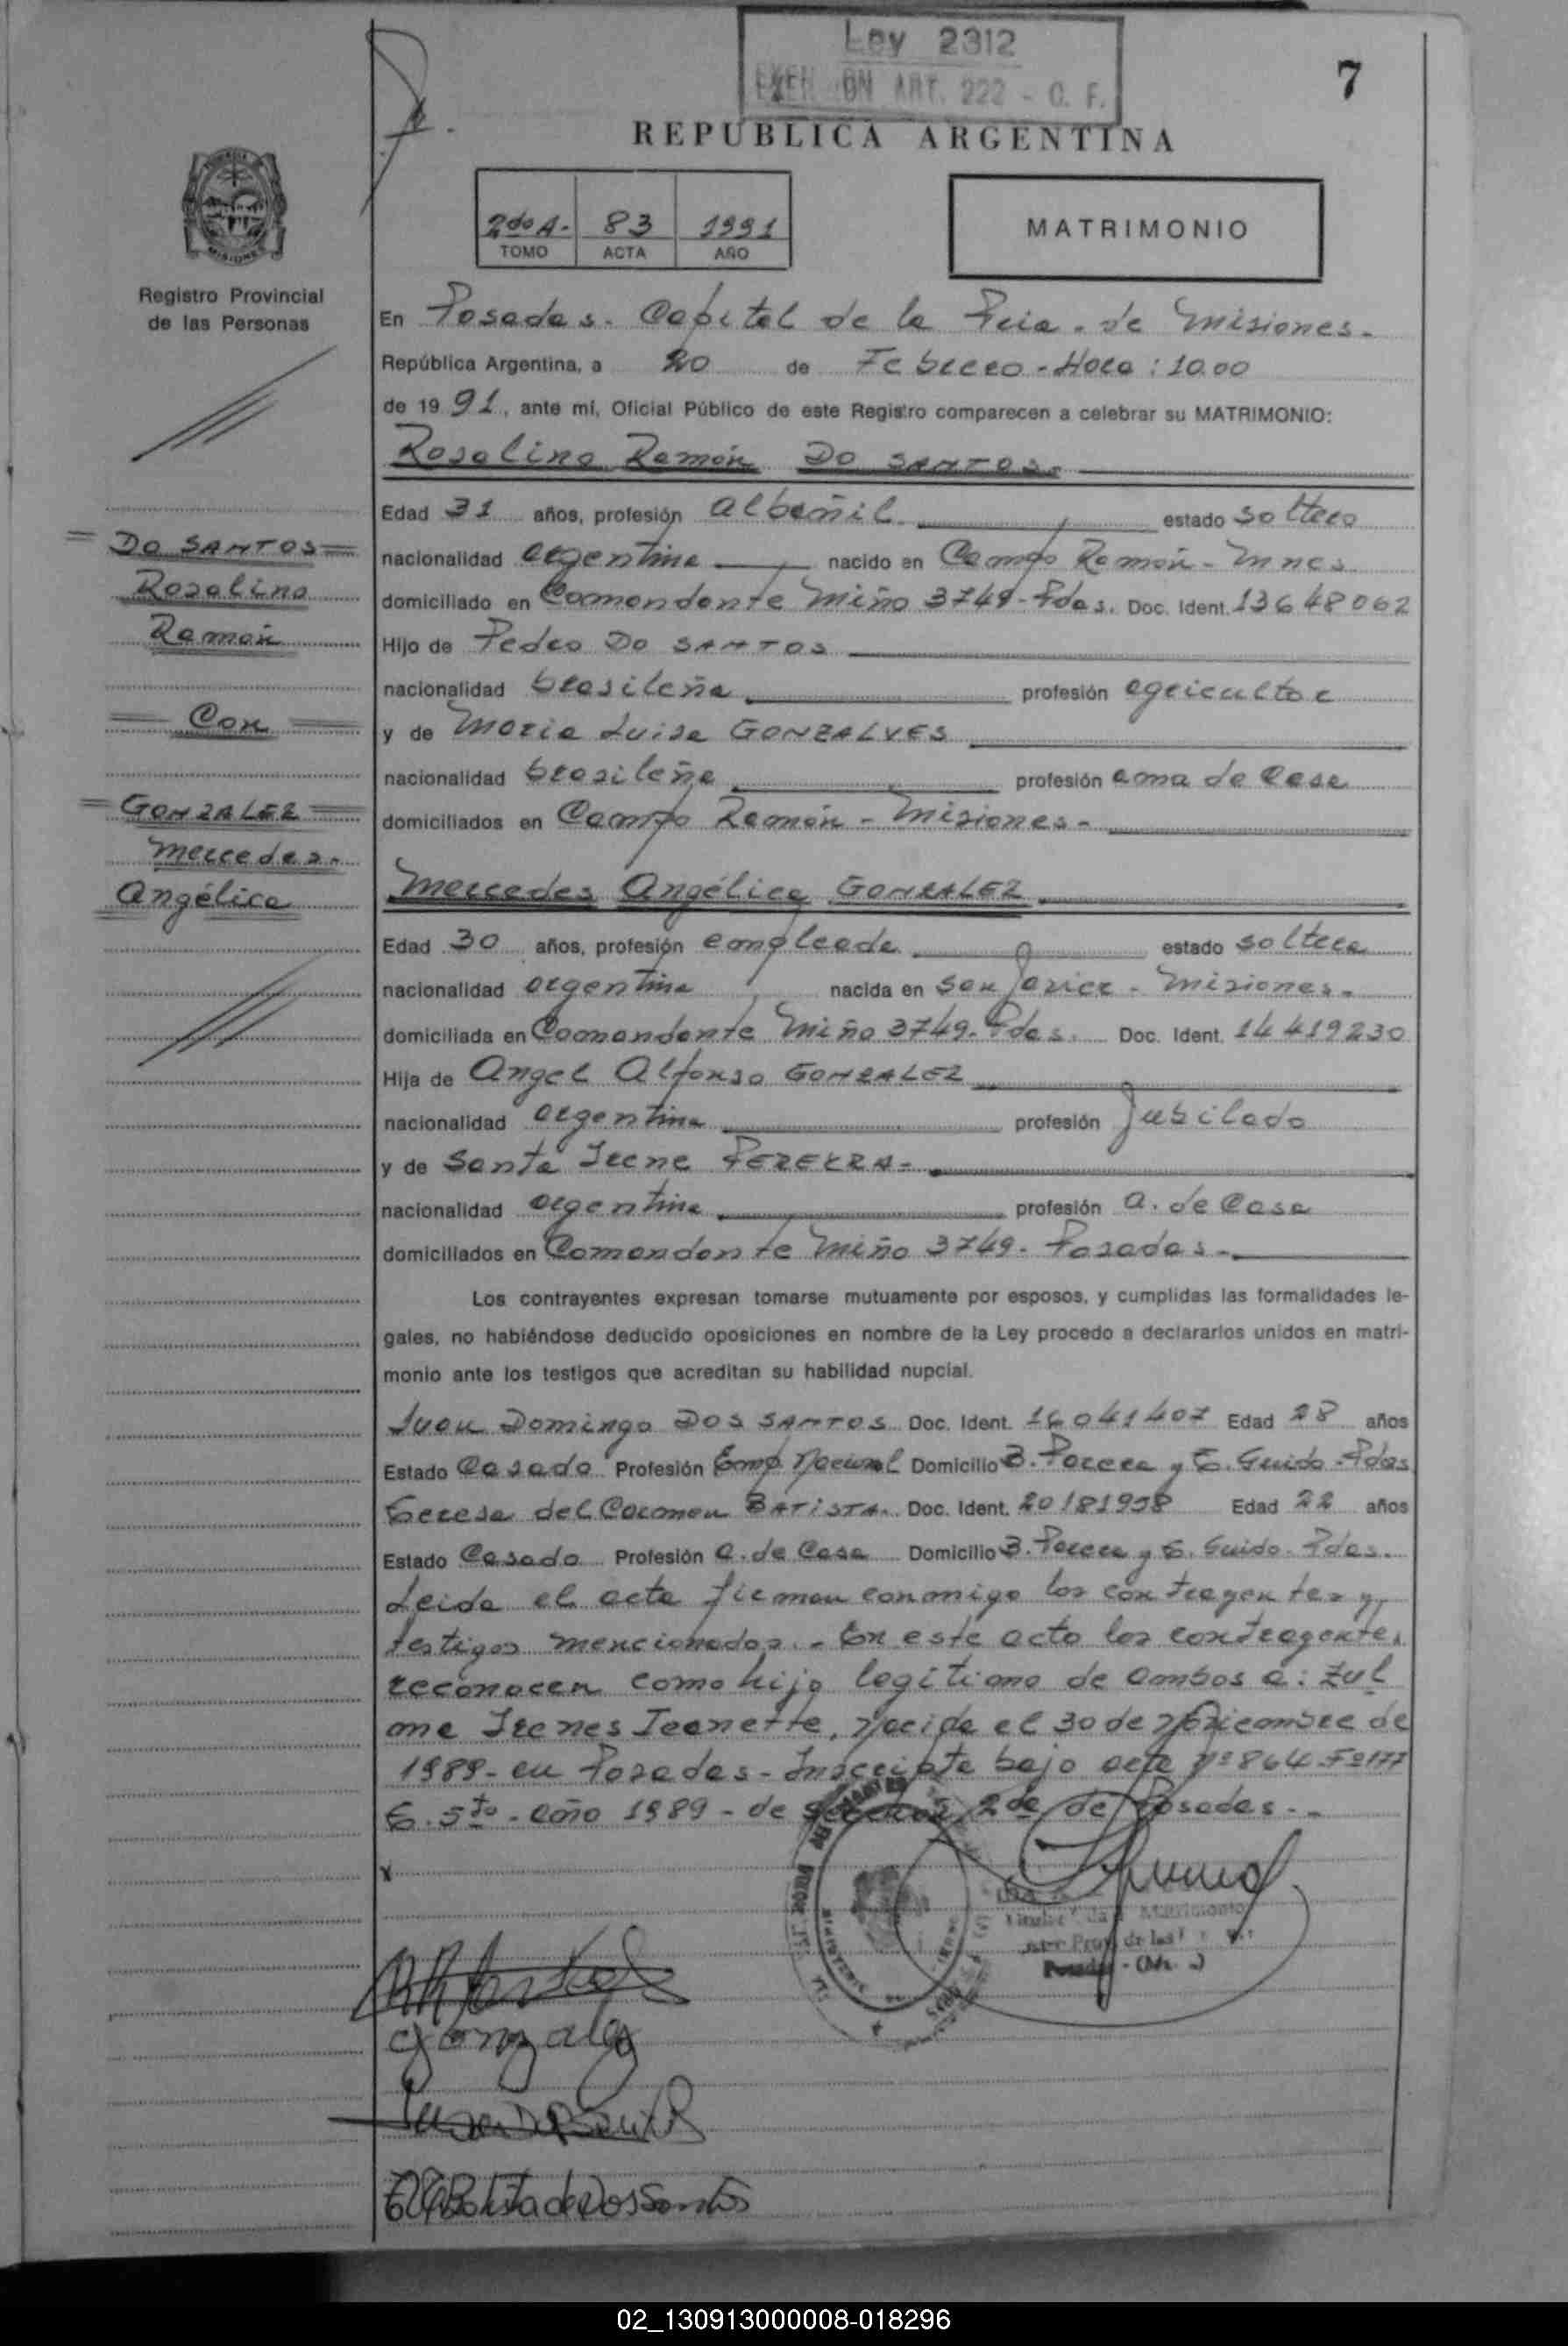 Ley 2312
EXEN ON ART. 222 - C. F.
7
REPUBLICA ARGENTINA
2do A.- 83 1991
TOMO ACTA AÑO
MATRIMONIO
Registro Provincial
de las Personas
En Posadas. Capital de la Pcia. de Misiones.-
República Argentina, a 20 de Febrero - Hora: 10.00
de 19 91, ante mí, Oficial Público de este Registro comparecen a celebrar su MATRIMONIO:
Rosalino Ramón DO SANTOS.
Edad 31 años, profesión albañil estado soltero
nacionalidad argentina nacido en Campo Ramón - Mnes
domiciliado en Comandante Miño 3749 - Pdas. Doc. Ident. 13648062
Hijo de Pedro DO SANTOS
nacionalidad brasileña profesión agricultor
y de Maria Luisa GONZALVES
nacionalidad brasileña profesión ama de casa
domiciliados en Campo Ramón - Misiones -
Mercedes Angélica GONZALEZ
Edad 30 años, profesión empleada estado soltera
nacionalidad argentina nacida en San Javier - Misiones.
domiciliada en Comandante Miño 3749. Pdas. Doc. Ident. 14419230
Hija de Angel Alfonso GONZALEZ
nacionalidad argentina profesión jubilado
y de Santa Irene PEREYRA -
nacionalidad argentina profesión a. de casa
domiciliados en Comandante Miño 3749. Posadas -
DO SANTOS
Rosalino
Ramón
Con
GONZALEZ
Mercedes.
Angélica
Los contrayentes expresan tomarse mutuamente por esposos, y cumplidas las formalidades le-
gales, no habiéndose deducido oposiciones en nombre de la Ley procedo a declararlos unidos en matri-
monio ante los testigos que acreditan su habilidad nupcial.
Juan Domingo DOS SANTOS Doc. Ident. 16041407 Edad 28 años
Estado Casado Profesión Emp. Nacional Domicilio B. Parera y T. Guido - Pdas
Teresa del Carmen BATISTA. Doc. Ident. 20181958 Edad 22 años
Estado Casado Profesión a. de casa Domicilio B. Parera y T. Guido. Pdas.
Leida el acta firman conmigo los contrayentes y
testigos mencionados. - En este acto los contrayentes
reconocen como hijo legitimo de ambos a: Zul
ma Irenes Jeanette, nacida el 30 de de
1989 - en Posadas - Inscripta bajo acta Nº 864 Fº 177
T. 5to - año 1989 - de Sección 2da de Posadas. -
x
Gonzalez
Posadas - (Mnes.)
TCBatista de Dos Santos
02_130913000008-018296